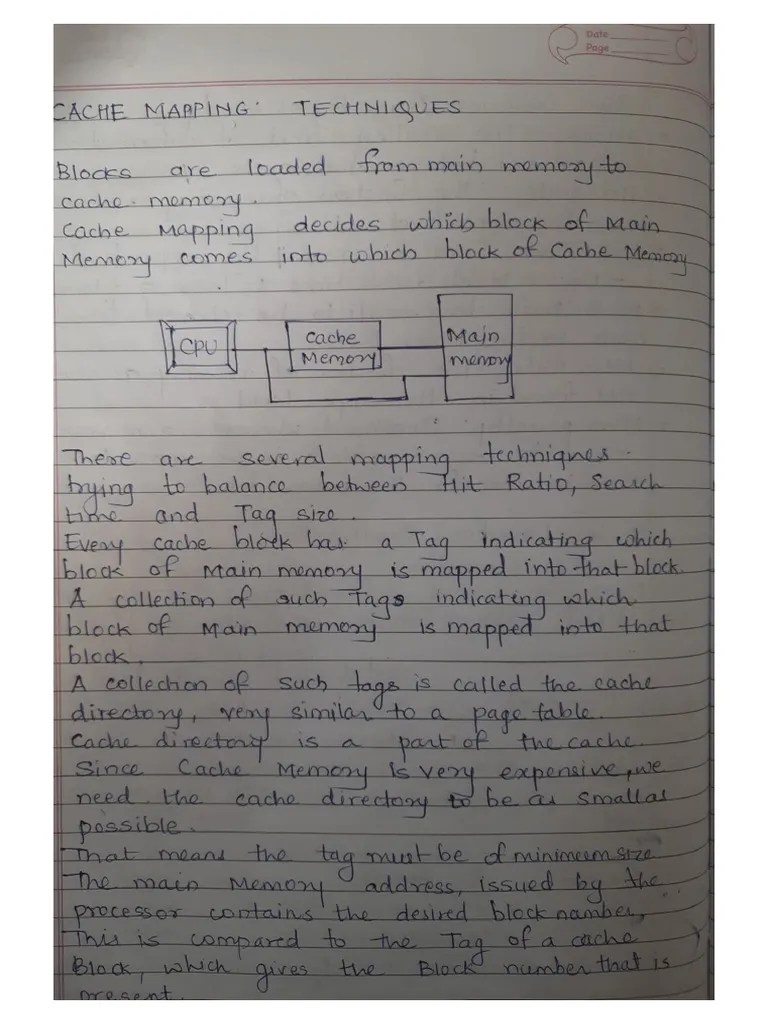 Date
Page
CACHE MAPPING: TECHNIQUES
Blocks are loaded from main memory to
cache memory.
Cache Mapping decides which block of Main
Memory comes into which block of Cache Memory
CPU
Cache
Memory
Main
memory
There are several mapping techniques.
trying to balance between Hit Ratio, Search
time and Tag size.
Every cache block has a Tag indicating which
block of Main memory is mapped into that block.
A collection of such Tags indicating which
block of Main memory is mapped into that
block.
A collection of such tags is called the cache
directory, very similar to a page table.
Cache directory is a part of the cache.
Since Cache Memory is very expensive, we
need the cache directory to be as small as
possible.
That means the tag must be of minimum size
The main Memory address, issued by the
processor contains the desired block number,
This is compared to the Tag of a cache
Block, which gives the Block number that is
present.